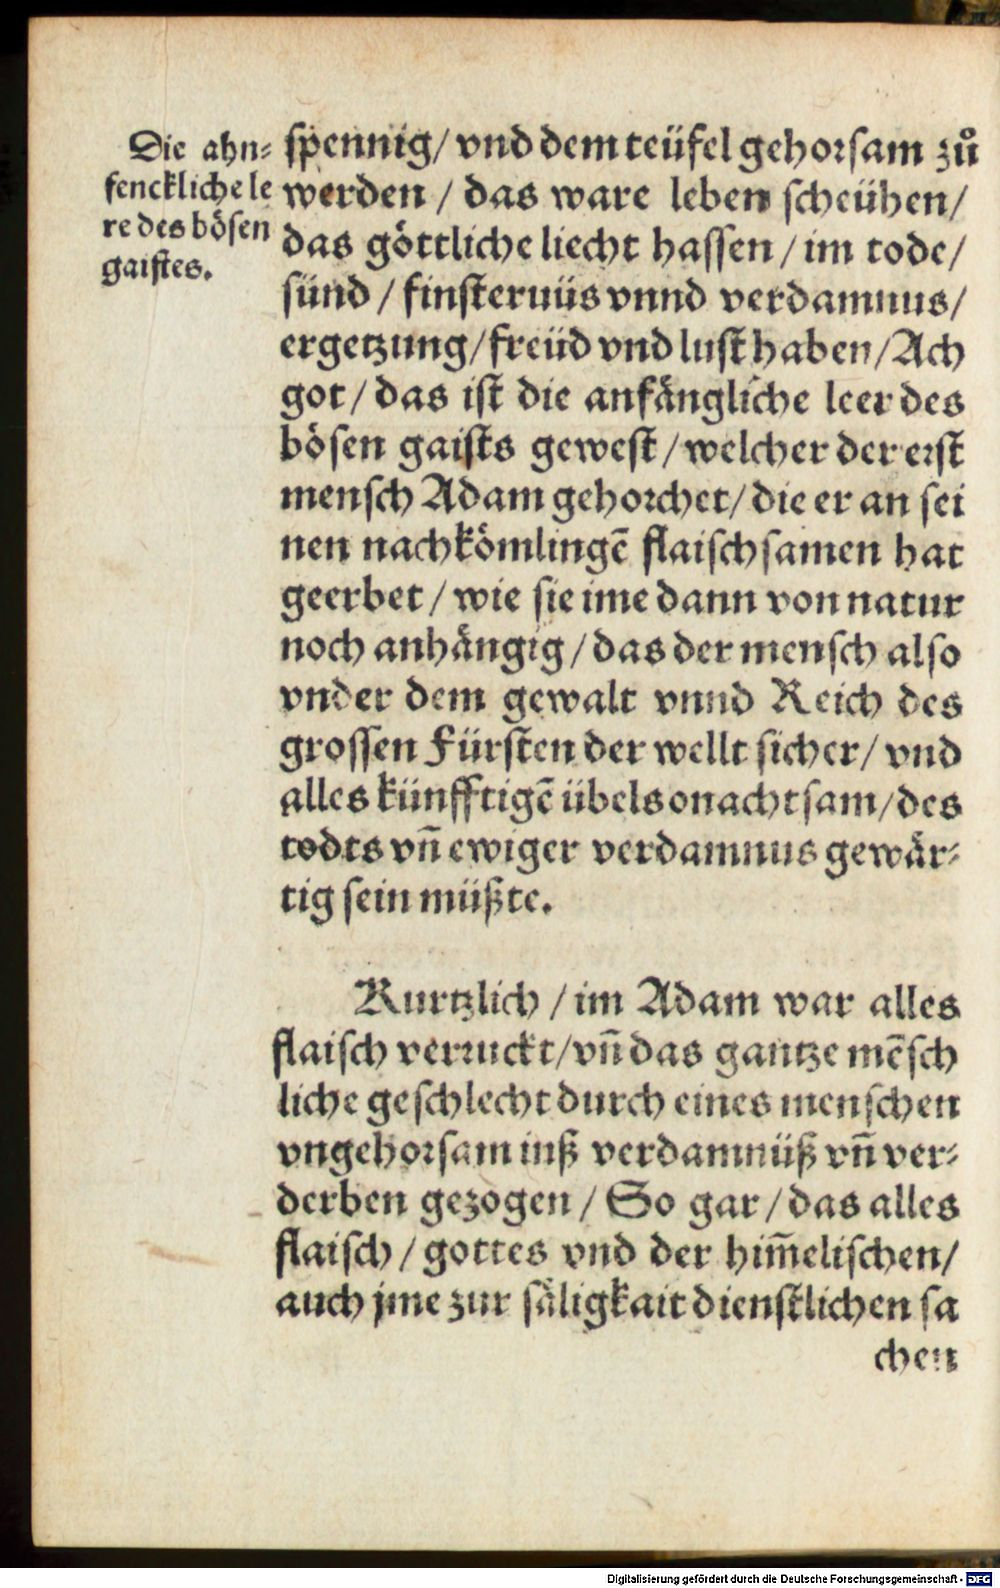 Die ahn⸗
fenckliche le
re des bösen
gaistes.
spennig/ vnd dem teüfel gehorsam zů
werden / das ware leben scheühen/
das göttliche liecht hassen / im tode/
sünd / finsternüs vnnd verdamnus/
ergetzung/ freüd vnd lust haben/ Ach
got / das ist die anfängliche leer des
bösen gaists gewest / welcher der erst
mensch Adam gehorchet/ die er an sei
nen nachkömlingē flaisch samen hat
geerbet / wie sie ime dann von natur
noch anhängig / das der mensch also
vnder dem gewalt vnnd Reich des
grossen Fürsten der wellt sicher/ vnd
alles künfftigē übels onachtsam/ des
todts vn̄ ewiger verdamnus gewär⸗
tig sein müßte.
Kurtzlich / im Adam war alles
flaisch verruckt/ vn̄ das gantze mēsch
liche geschlecht durch eines menschen
vngehorsam inß verdamnüß vn̄ ver⸗
derben gezogen / So gar / das alles
flaisch / gottes vnd der him̄elischen/
auch jme zur säligkait dienstlichen sa
chen
Digitalisierung gefördert durch die Deutsche Forschungsgemeinschaft - DFG